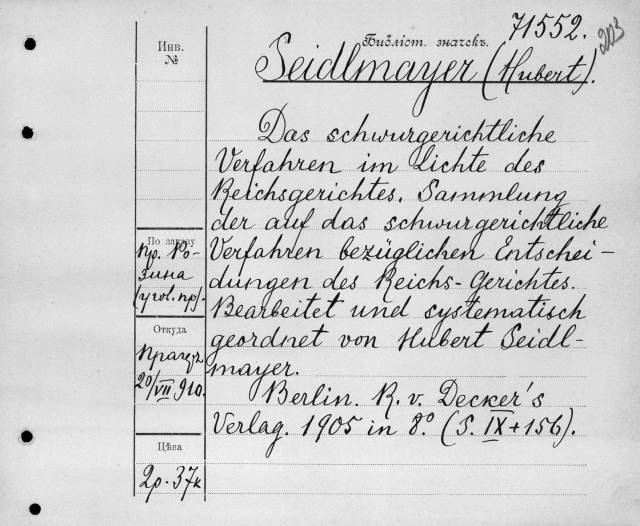 71552.
203
Инв.
№
Библіот. значекъ.
Seidlmayer (Hubert).
Das schwurgerichtliche
Verfahren im Lichte des
Reichsgerichtes. Sammlung
der auf das schwurgerichtliche
Verfahren bezüglichen Entschei-
dungen des Reichs-Gerichtes.
Bearbeitet und systematisch
geordnet von Hubert Seidl-
mayer.
Berlin. R. v. Decker's
Verlag. 1905 in 8º. (S. IX+156).
По заказу
пр. Ро-
зина
(угол. пр).
Откуда
Прагеръ
20/VII 910.
Цѣна
2р. 37к